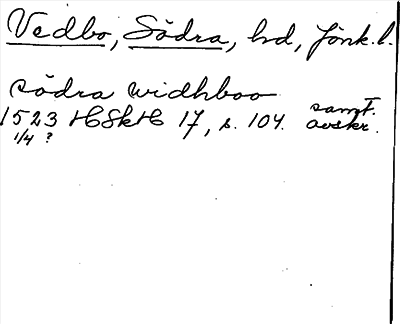 Vedbo, Södra, hd, Jönk.l.
södra widhboo
1523 HSkH 17, s. 104. samt. avskr.
1/4 ?